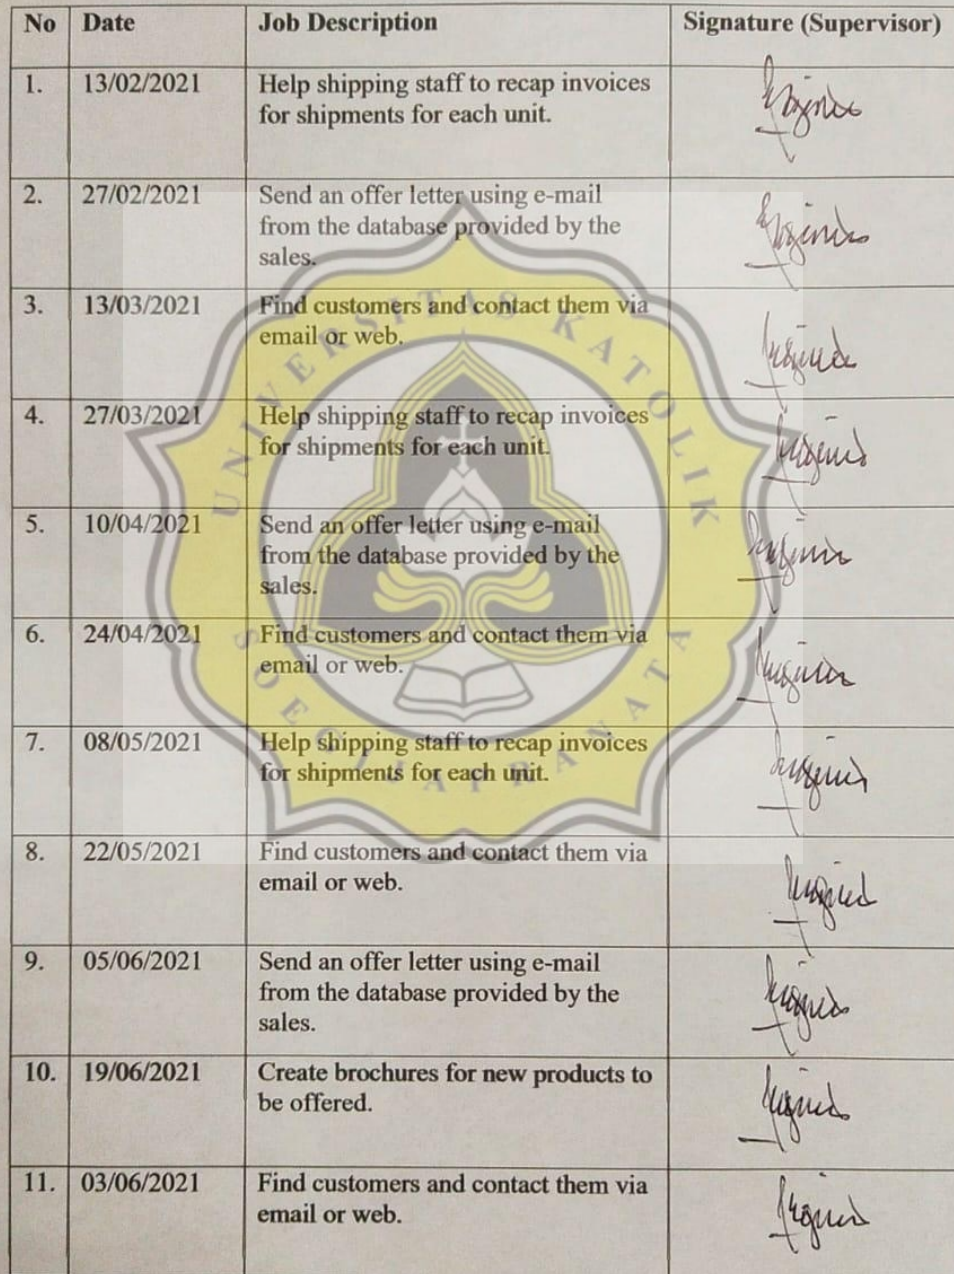 No Date Job Description Signature (Supervisor)
1. 13/02/2021 Help shipping staff to recap invoices
for shipments for each unit.
2. 27/02/2021 Send an offer letter using e-mail
from the database provided by the
sales.
3. 13/03/2021 Find customers and contact them via
email or web.
4. 27/03/2021 Help shipping staff to recap invoices
for shipments for each unit.
5. 10/04/2021 Send an offer letter using e-mail
from the database provided by the
sales.
6. 24/04/2021 Find customers and contact them via
email or web.
7. 08/05/2021 Help shipping staff to recap invoices
for shipments for each unit.
8. 22/05/2021 Find customers and contact them via
email or web.
9. 05/06/2021 Send an offer letter using e-mail
from the database provided by the
sales.
10. 19/06/2021 Create brochures for new products to
be offered.
11. 03/06/2021 Find customers and contact them via
email or web.
UNIVERSITAS KATOLIK
SOEGIJAPRANATA